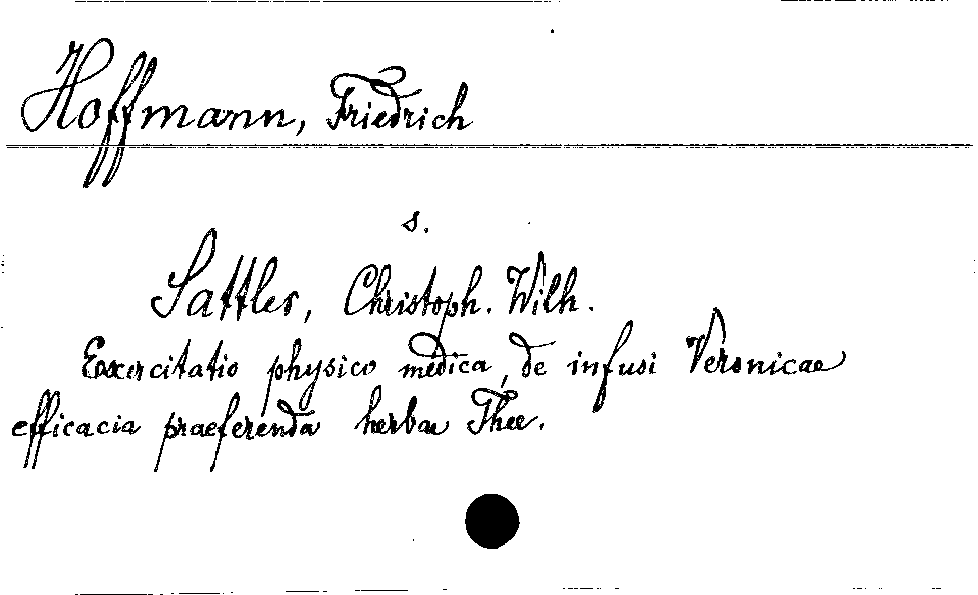 Hoffmann, Friedrich
s.
Sattler, Christoph. Wilh.
Exercitatio physico medica, de infusi Veronicae
efficacia praeferenda herbae Thee.